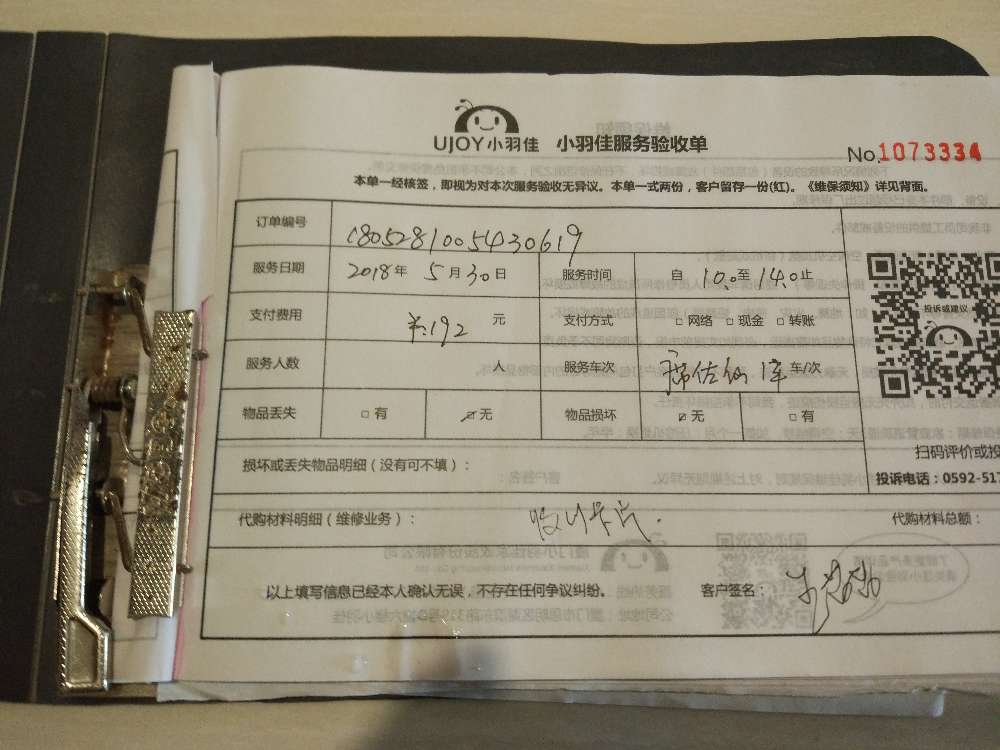 UJOY小羽佳 小羽佳服务验收单
No.1073334
本单一经核签，即视为对本次服务验收无异议。本单一式两份，客户留存一份(红)。《维保须知》详见背面。
订单编号 1805281005430619
服务日期 2018年 5月30日 服务时间 自 10.至14.0止
支付费用 ¥:192 元 支付方式 □网络 □现金 □转账
投诉或建议
服务人数 人 服务车次 车/次
物品丢失 □有 ☑无 物品损坏 ☑无 □有
损坏或丢失物品明细（没有可不填）：
扫码评价或投
投诉电话：0592-517
代购材料明细（维修业务）： 收小卡片.
代购材料总额：
以上填写信息已经本人确认无误，不存在任何争议纠纷。 客户签名：